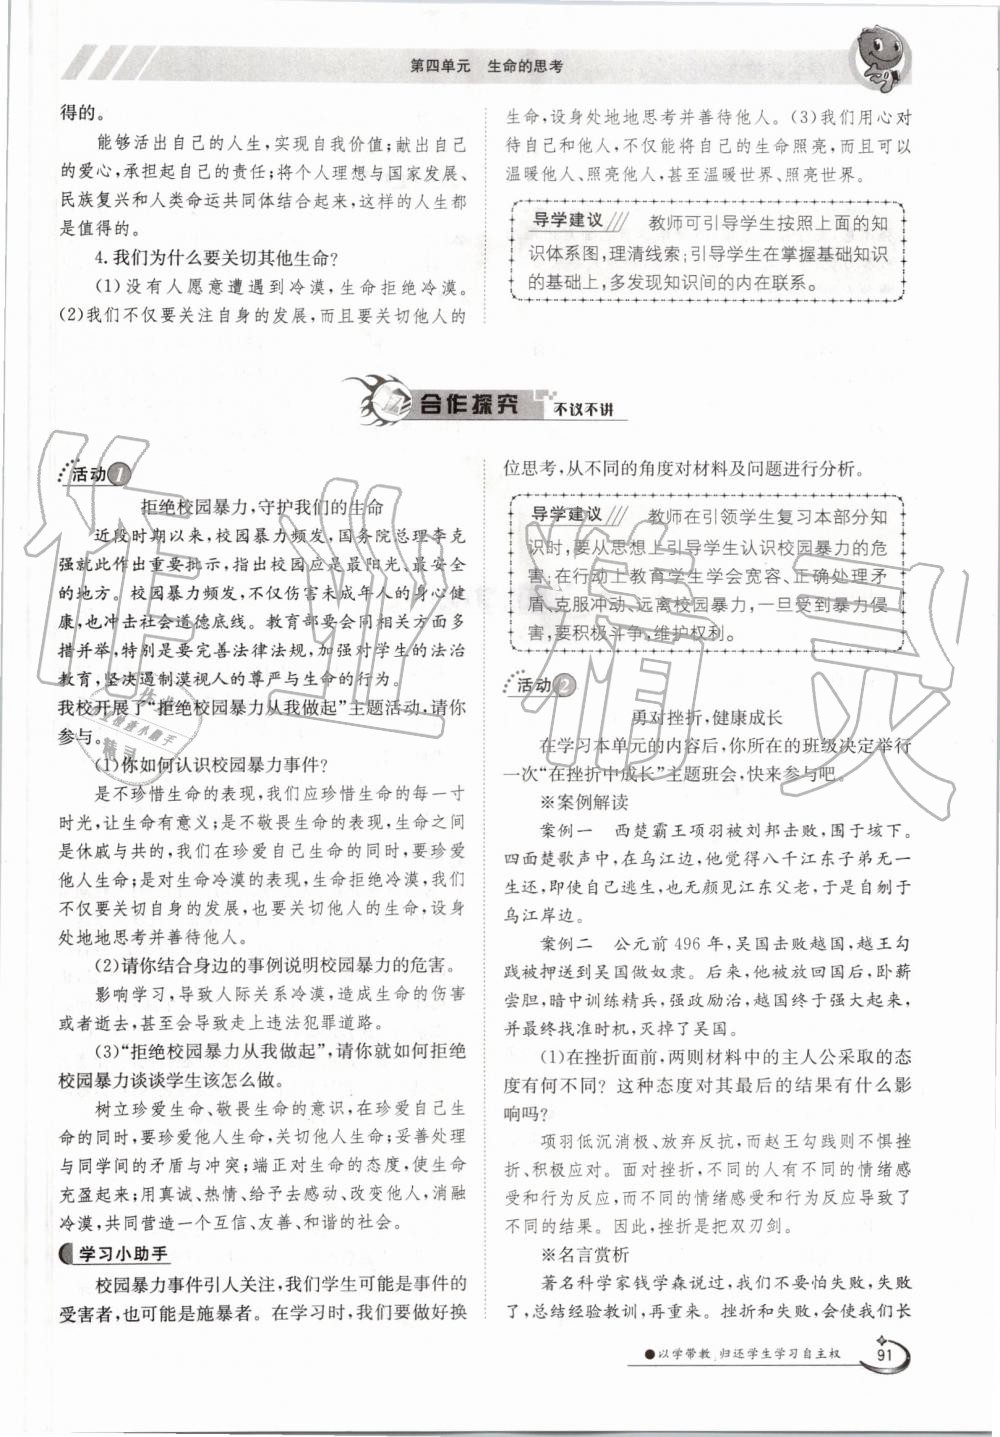 第四单元 生命的思考
得的。
能够活出自己的人生,实现自我价值;献出自己
的爱心,承担起自己的责任;将个人理想与国家发展、
民族复兴和人类命运共同体结合起来,这样的人生都
是值得的。
4.我们为什么要关切其他生命?
(1)没有人愿意遭遇到冷漠,生命拒绝冷漠。
(2)我们不仅要关注自身的发展,而且要关切他人的
生命,设身处地地思考并善待他人。(3)我们用心对
待自己和他人,不仅能将自己的生命照亮,而且可以
温暖他人、照亮他人,甚至温暖世界、照亮世界。
导学建议 教师可引导学生按照上面的知
识体系图,理清线索;引导学生在掌握基础知识
的基础上,多发现知识间的内在联系。
合作探究 不议不讲
活动1
拒绝校园暴力,守护我们的生命
近段时期以来,校园暴力频发,国务院总理李克
强就此作出重要批示,指出校园应是最阳光、最安全
的地方。校园暴力频发,不仅伤害未成年人的身心健
康,也冲击社会道德底线。教育部要会同相关方面多
措并举,特别是要完善法律法规,加强对学生的法治
教育,坚决遏制漠视人的尊严与生命的行为。
我校开展了“拒绝校园暴力从我做起”主题活动,请你
参与。
(1)你如何认识校园暴力事件?
是不珍惜生命的表现,我们应珍惜生命的每一寸
时光,让生命有意义;是不敬畏生命的表现,生命之间
是休戚与共的,我们在珍爱自己生命的同时,要珍爱
他人生命;是对生命冷漠的表现,生命拒绝冷漠,我们
不仅要关切自身的发展,也要关切他人的生命,设身
处地地思考并善待他人。
(2)请你结合身边的事例说明校园暴力的危害。
影响学习,导致人际关系冷漠,造成生命的伤害
或者逝去,甚至会导致走上违法犯罪道路。
(3)“拒绝校园暴力从我做起”,请你就如何拒绝
校园暴力谈谈学生该怎么做。
树立珍爱生命、敬畏生命的意识,在珍爱自己生
命的同时,要珍爱他人生命,关切他人生命;妥善处理
与同学间的矛盾与冲突;端正对生命的态度,使生命
充盈起来;用真诚、热情、给予去感动、改变他人,消融
冷漠,共同营造一个互信、友善、和谐的社会。
学习小助手
校园暴力事件引人关注,我们学生可能是事件的
受害者,也可能是施暴者。在学习时,我们要做好换
位思考,从不同的角度对材料及问题进行分析。
导学建议 教师在引领学生复习本部分知
识时,要从思想上引导学生认识校园暴力的危
害;在行动上教育学生学会宽容、正确处理矛
盾、克服冲动、远离校园暴力,一旦受到暴力侵
害,要积极斗争,维护权利。
活动2
勇对挫折,健康成长
在学习本单元的内容后,你所在的班级决定举行
一次“在挫折中成长”主题班会,快来参与吧。
※案例解读
案例一 西楚霸王项羽被刘邦击败,围于垓下。
四面楚歌声中,在乌江边,他觉得八千江东子弟无一
生还,即使自己逃生,也无颜见江东父老,于是自刎于
乌江岸边。
案例二 公元前496年,吴国击败越国,越王勾
践被押送到吴国做奴隶。后来,他被放回国后,卧薪
尝胆,暗中训练精兵,强政励治,越国终于强大起来,
并最终找准时机,灭掉了吴国。
(1)在挫折面前,两则材料中的主人公采取的态
度有何不同?这种态度对其最后的结果有什么影
响吗?
项羽低沉消极、放弃反抗,而赵王勾践则不惧挫
折、积极应对。面对挫折,不同的人有不同的情绪感
受和行为反应,而不同的情绪感受和行为反应导致了
不同的结果。因此,挫折是把双刃剑。
※名言赏析
著名科学家钱学森说过,我们不要怕失败,失败
了,总结经验教训,再重来。挫折和失败,会使我们长
●以学带教,归还学生学习自主权
91
作业精灵